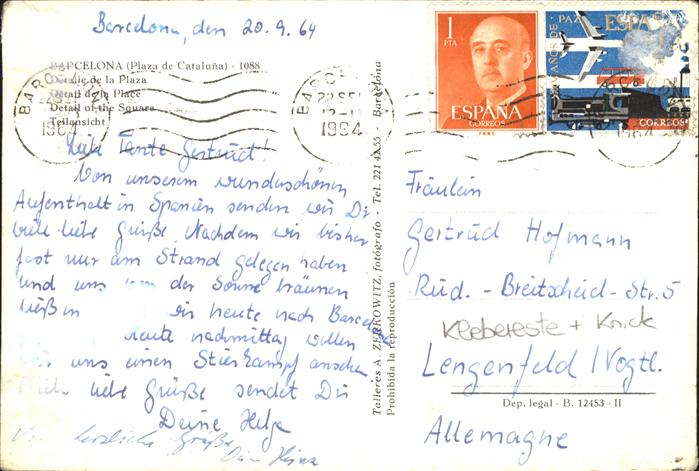 Barcelona, den 20.9.64
BARCELONA (Plaza de Cataluña) - 1088
Detalle de la Plaza
Detail de la Place
Detail of the Square
Teilansicht
BARC
1964
BARC
22 SE
1964
1 PTA
ESPAÑA
CORREOS
AÑOS DE PAZ
ESPAÑA
CORREOS
Liebe Tante Gertrud!
Von unserem wunderschönen
Aufenthalt in Spanien senden wir Dir
viele liebe Grüße. Nachdem wir bisher
fast nur am Strand gelegen haben
und uns von der Sonne bräunen
ließen wir heute nach Barcelona
heute nachmittag wollen
wir uns einen Stierkampf ansehen
Viele liebe Grüße sendet Dir
Deine Helga
herzliche Grüße
Talleres A. ZERKOWITZ, fotógrafo - Tel. 221 43 55 - Barcelona
Prohibida la reproducción
Fräulein
Gertrud Hofmann
Rud. - Breitscheid - Str. 5
Klebereste + Knick
Lengenfeld / Vogtl.
Dep. legal - B. 12453 - II
Allemagne